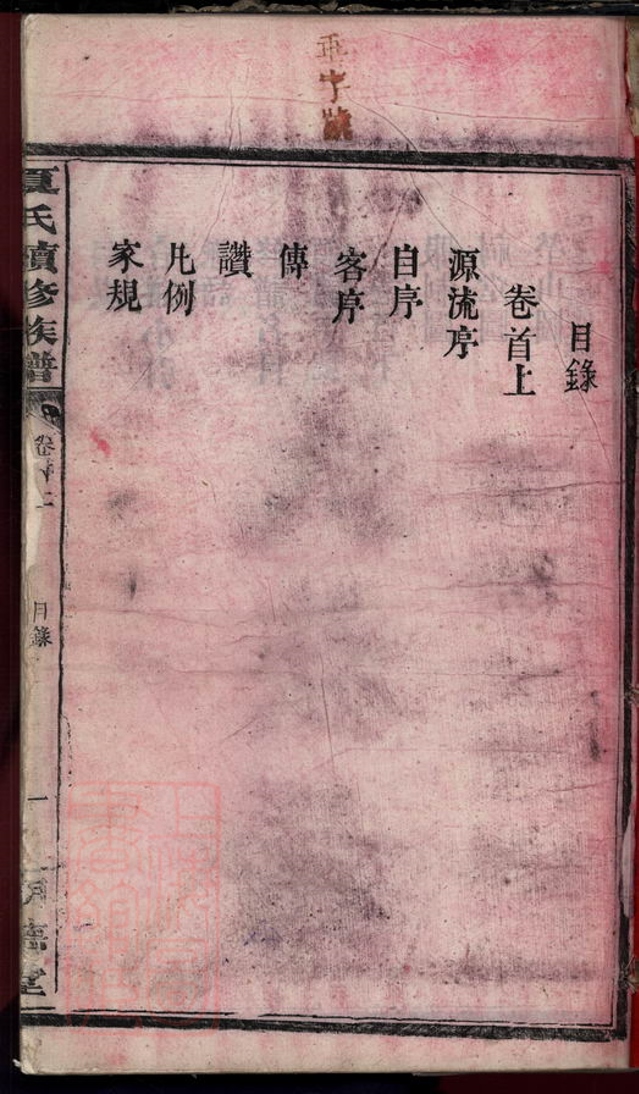 目錄
卷首上
源流序
自序
客序
傳
讚
凡例
家規
夏氏續修族譜
卷首上
目錄
一
字號